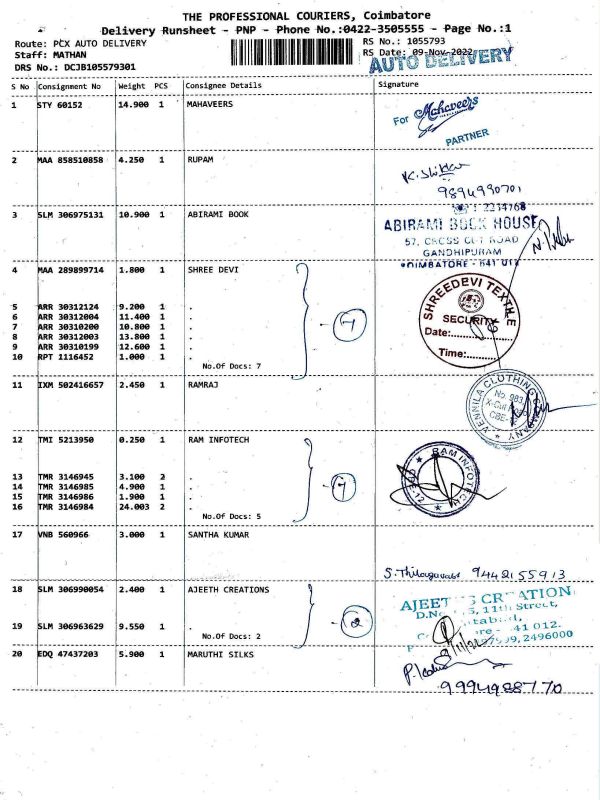 THE PROFESSIONAL COURIERS, Coimbatore
Delivery Runsheet - PNP - Phone No.:0422-3505555 - Page No.:1
Route: PCX AUTO DELIVERY
RS No.: 1055793
Staff: MATHAN
RS Date: 09-Nov-2022
DRS No.: DCJB105579301
AUTO DELIVERY
S No Consignment No Weight PCS Consignee Details Signature
1 STY 60152 14.900 1 MAHAVEERS
For Mahaveers
PARTNER
2 MAA 858510858 4.250 1 RUPAM
9894990701
3 SLM 306975131 10.900 1 ABIRAMI BOOK
ABIRAMI BOOK HOUSE
57, CROSS CUT ROAD
GANDHIPURAM
COIMBATORE - 641 012
4 MAA 289899714 1.800 1 SHREE DEVI
5 ARR 30312124 9.200 1 .
6 ARR 30312004 11.400 1 .
7 ARR 30310200 10.800 1 .
8 ARR 30312003 13.800 1 .
9 ARR 30310199 12.600 1 .
10 RPT 1116452 1.000 1 .
No.Of Docs: 7
- 7
SHREEDEVI TEXTILE
SECURITY
Date:
Time:
11 IXM 502416657 2.450 1 RAMRAJ
VENNILA CLOTHING COMPANY
No. 983,
X-Cut Road
CBE-12
12 TMI 5213950 0.250 1 RAM INFOTECH
13 TMR 3146945 3.100 2 .
14 TMR 3146985 4.900 1 .
15 TMR 3146986 1.900 1 .
16 TMR 3146984 24.003 2 .
No.Of Docs: 5
- 7
RAM INFOTECH
CBE-12
17 VNB 560966 3.000 1 SANTHA KUMAR
9442155913
18 SLM 306990054 2.400 1 AJEETH CREATIONS
19 SLM 306963629 9.550 1 .
No.Of Docs: 2
- 2
CREATION
11th Street,
2496000
20 EDQ 47437203 5.900 1 MARUTHI SILKS
9994988770